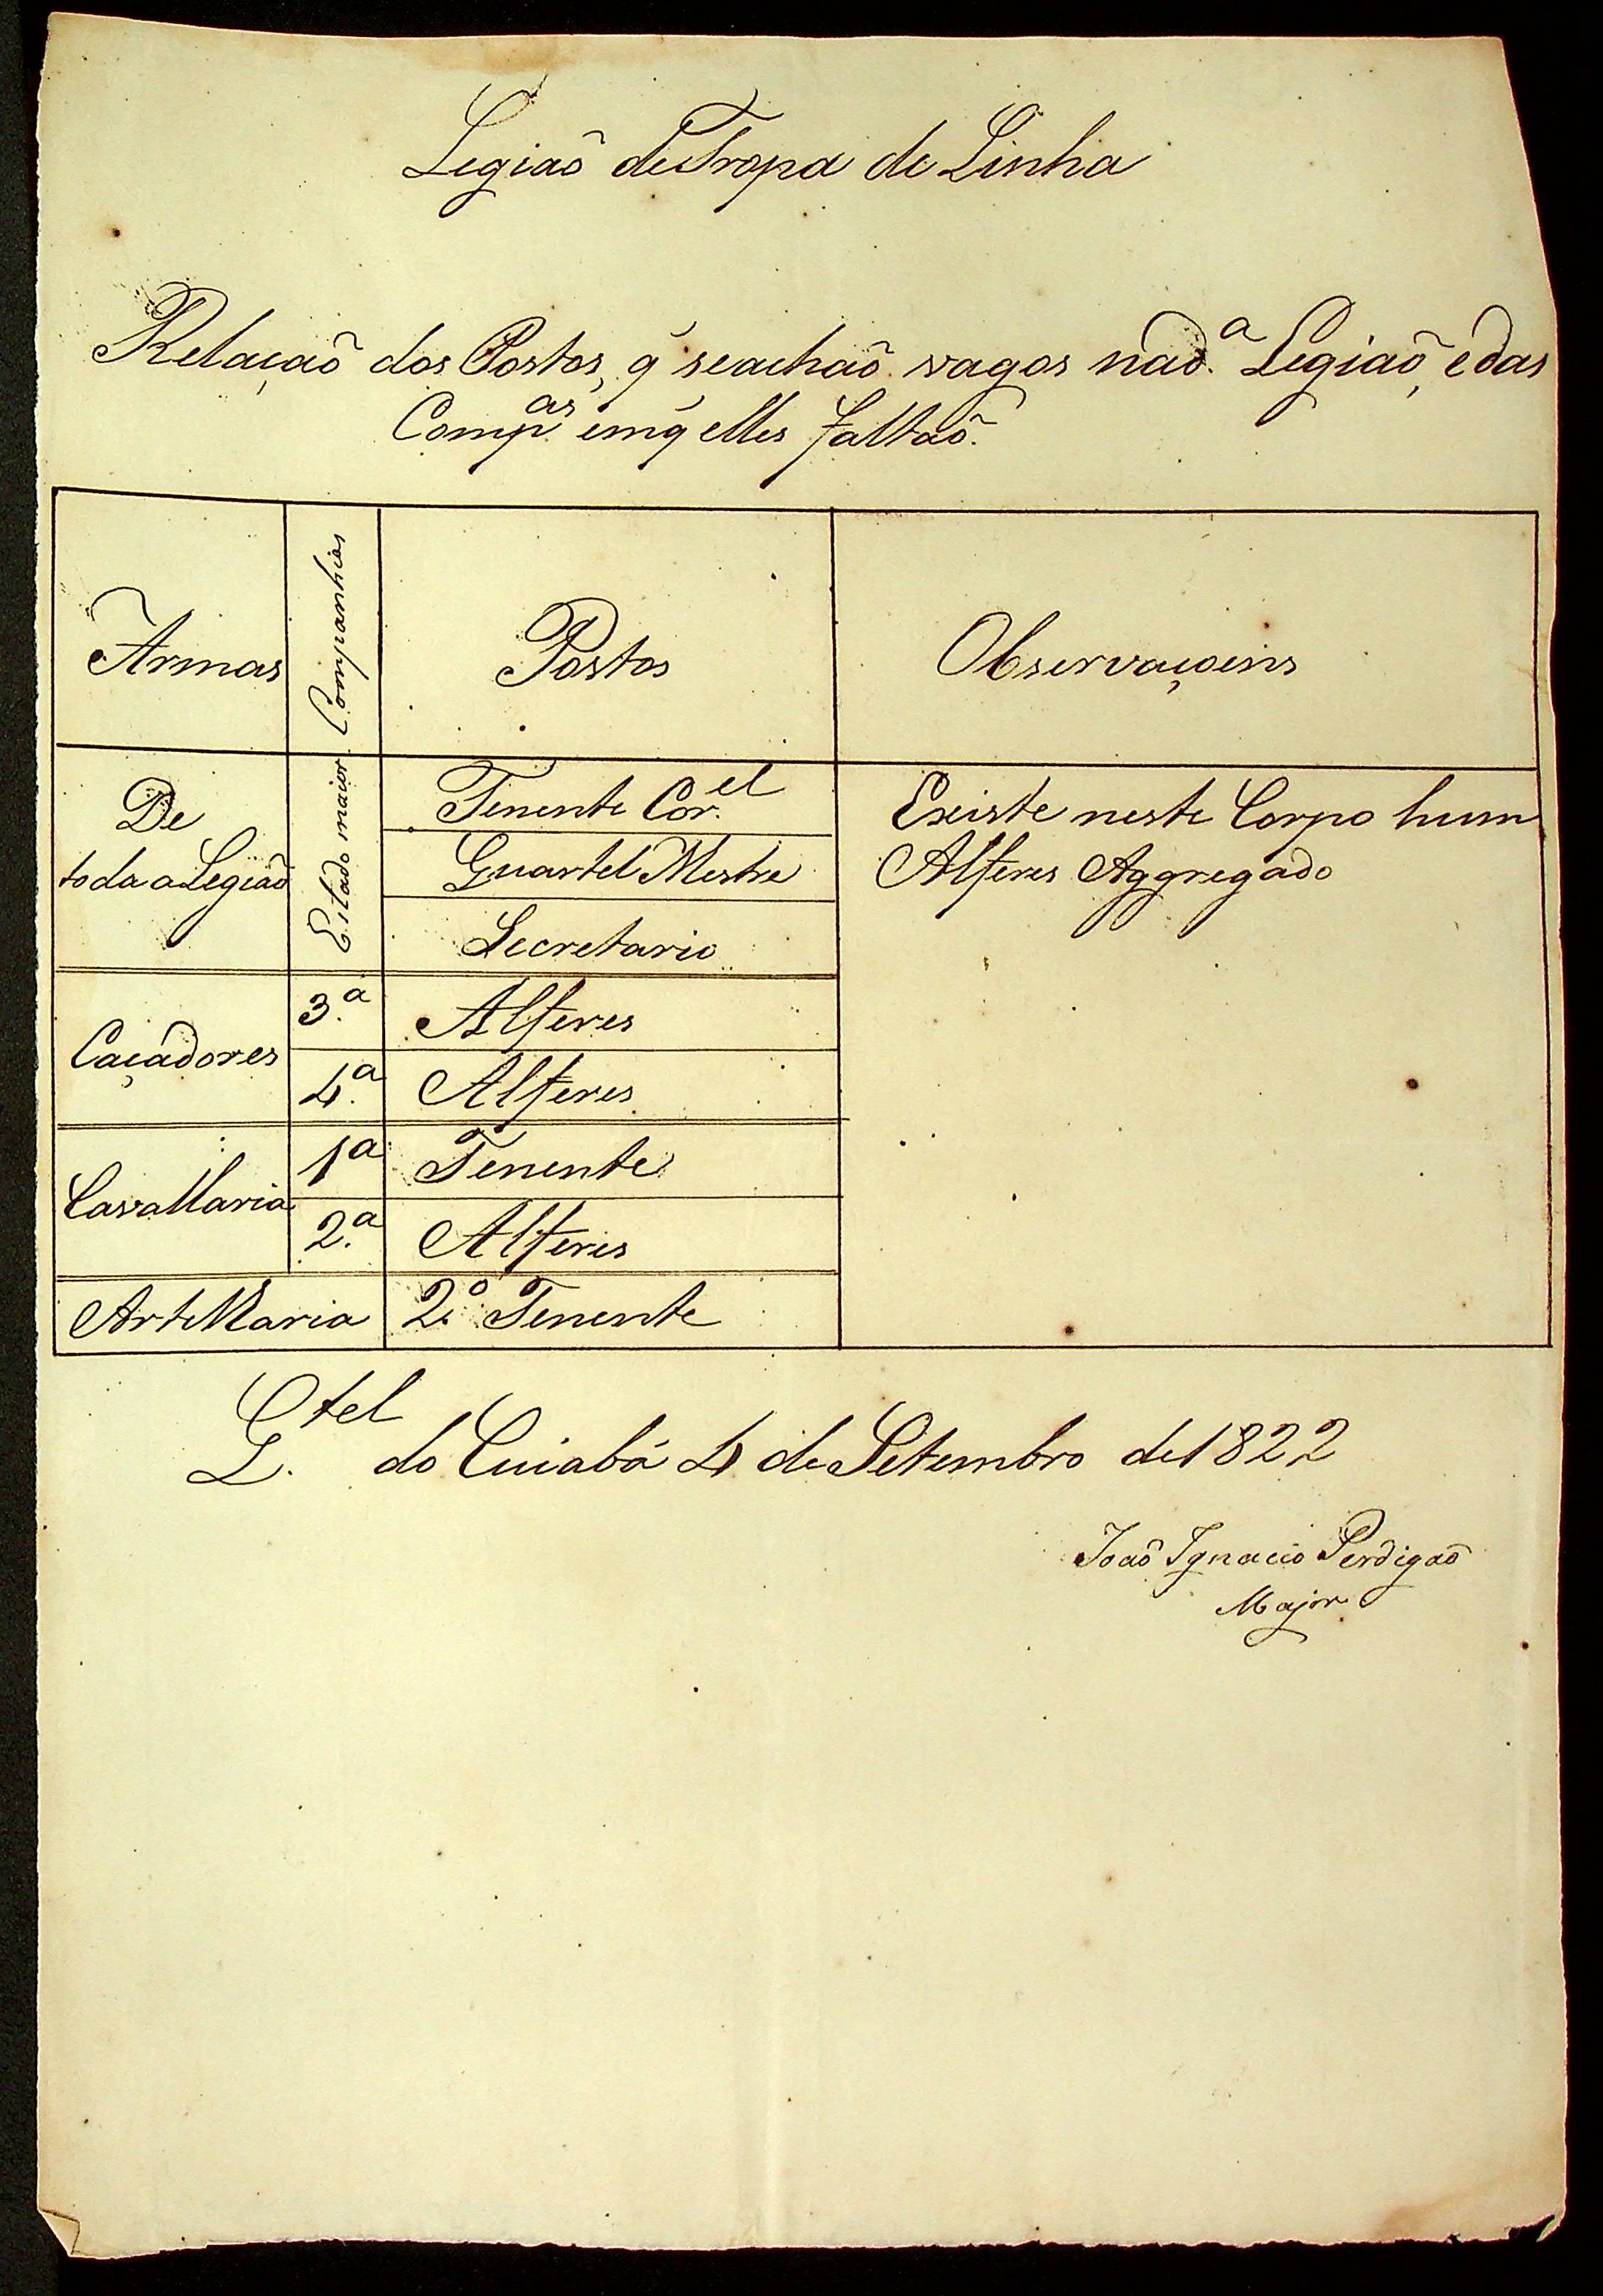 Legiaõ de Tropa de Linha
Relaçaõ dos Postos, q̃ se achaõ vagos na d.ª Legiaõ, e das
Comp.as em q̃ elles faltaõ.
Armas Companhias Postos Observaçoens
De
toda a Legiaõ
Estado maior
Tenente Cor.el
Quartel Mestre
Secretario
Existe neste Corpo hum
Alferes Aggregado
Caçadores
3.ª Alferes
4.ª Alferes
Cavallaria
1ª Tenente
2.ª Alferes
Artilharia 2.º Tenente
Q.tel do Cuiabá 4 de Setembro de 1822
Joaõ Ignacio Perdigaõ
Major